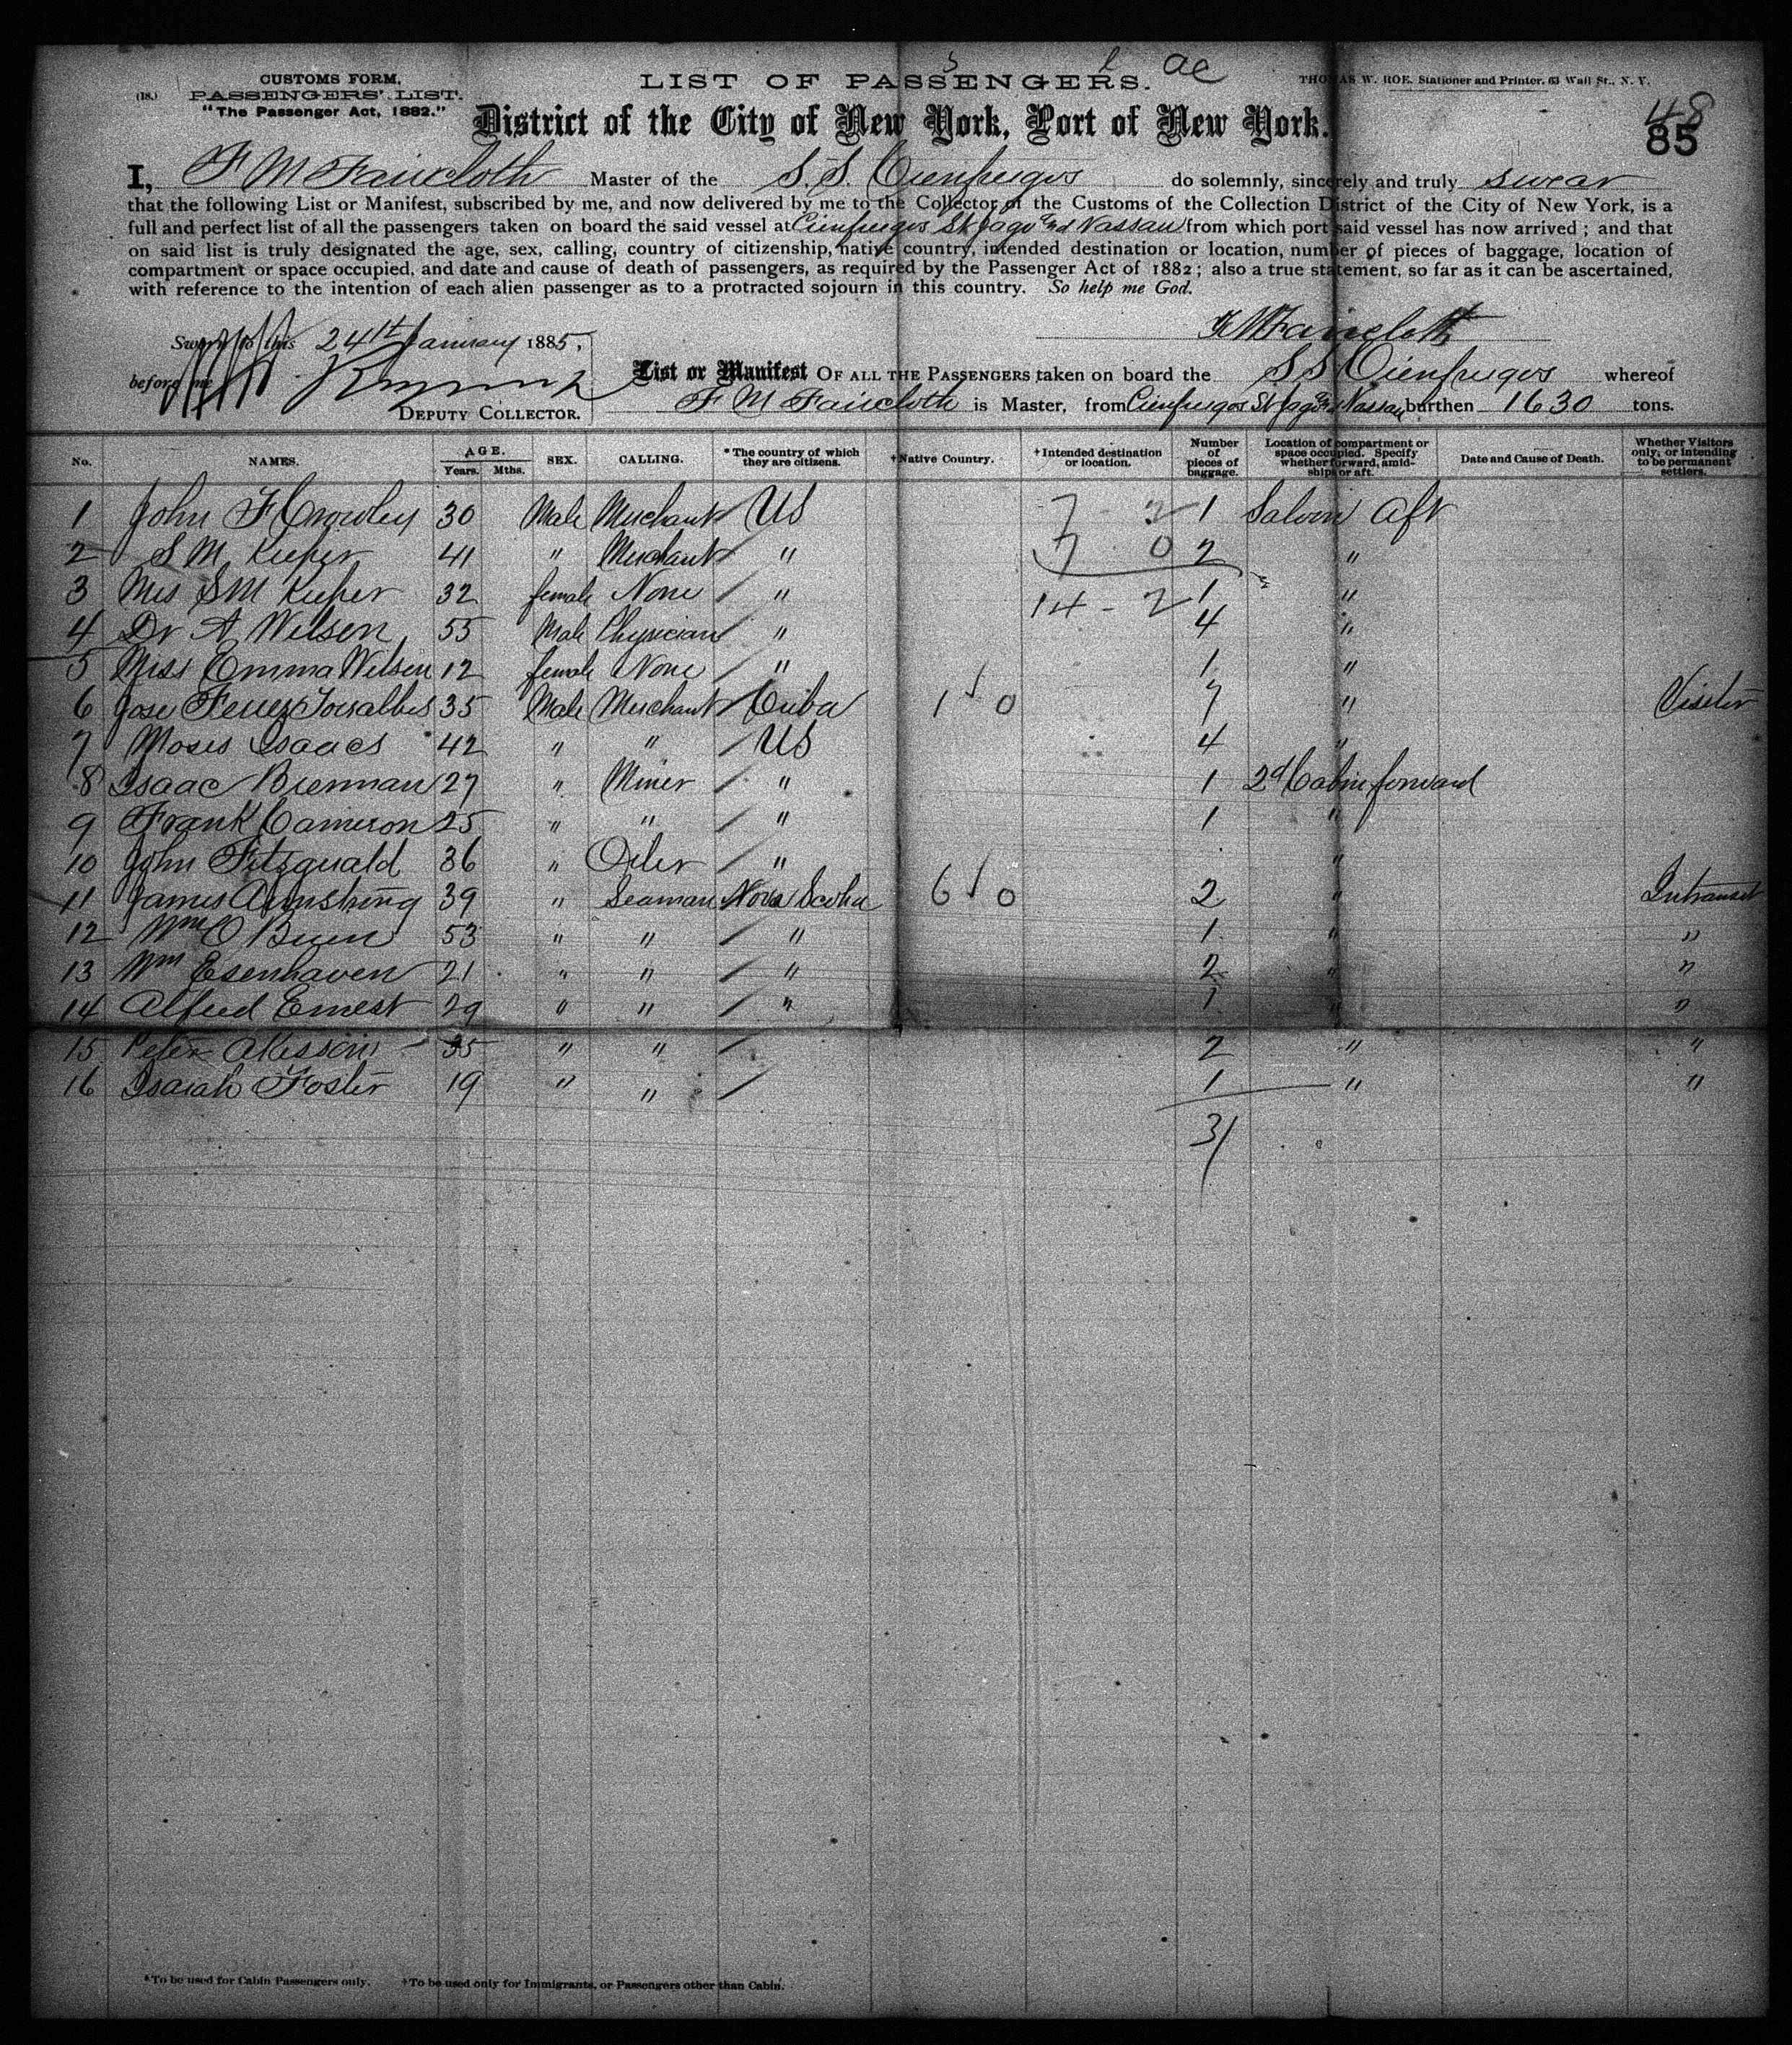 CUSTOMS FORM.
(18.) PASSENGERS' LIST.
"The Passenger Act, 1882."
LIST OF PASSENGERS. ac
THOMAS W. ROE, Stationer and Printer, 63 Wall St., N. Y.
District of the City of New York, Port of New York.
48
85
I, F M Faircloth Master of the S. S. Cienfuegos do solemnly, sincerely and truly swear
that the following List or Manifest, subscribed by me, and now delivered by me to the Collector of the Customs of the Collection District of the City of New York, is a
full and perfect list of all the passengers taken on board the said vessel at Cienfuegos St Jago and Nassau from which port said vessel has now arrived ; and that
on said list is truly designated the age, sex, calling, country of citizenship, native country, intended destination or location, number of pieces of baggage, location of
compartment or space occupied, and date and cause of death of passengers, as required by the Passenger Act of 1882 ; also a true statement, so far as it can be ascertained,
with reference to the intention of each alien passenger as to a protracted sojourn in this country. So help me God.
Sworn to this 24th January 1885,
F M Faircloth
before me
DEPUTY COLLECTOR.
List or Manifest OF ALL THE PASSENGERS taken on board the S S Cienfuegos whereof
F M Faircloth is Master, from Cienfuegos St Jago and Nassau burthen 1630 tons.
No. NAMES. AGE. Years. Mths. SEX. CALLING. * The country of which they are citizens. † Native Country. † Intended destination or location. Number of pieces of baggage. Location of compartment or space occupied. Specify whether forward, amidships or aft. Date and Cause of Death. Whether Visitors only, or intending to be permanent settlers.
1 John F Crowley 30 Male Merchant US 7 2 1 Saloon Aft
2 S M Kieper 41 " Merchant " 7 0 2 "
3 Mrs S M Kieper 32 female None " 14 - 2 1 "
4 Dr A Wilson 55 Male Physician " 4 "
5 Miss Emma Wilson 12 female None " 1 "
6 Jose Ferrer 35 Male Merchant Cuba 1 0 7 " Visitor
7 Moses Isaacs 42 " " US 4 "
8 Isaac Brennan 27 " Miner " 1 2d Cabin forward
9 Frank Cameron 25 " " " 1 "
10 John Fitzgerald 36 " Oiler " "
11 James Armstrong 39 " Seaman Nova Scotia 6 0 2 " Intransit
12 Wm O Brien 53 " " " 1 " "
13 Wm Esenhaven 21 " " " 2 " "
14 Alfred Ernest 29 " " " 1 " "
15 Peter Akesson 35 " " 2 " "
16 Isaiah Foster 19 " " 1 " "
31
* To be used for Cabin Passengers only. † To be used only for Immigrants, or Passengers other than Cabin.